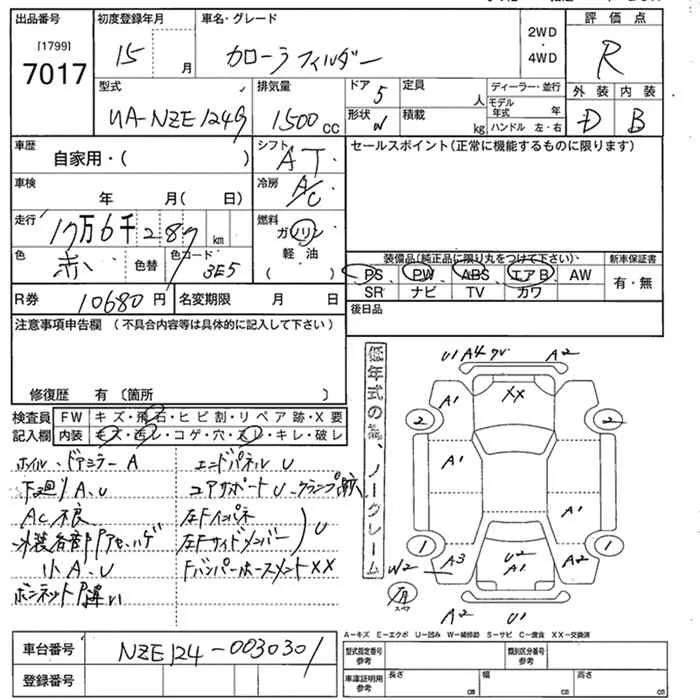 出品番号 初度登録年月 車名・グレード 評価点
[1799]
7017 15 月 カローラフィルダー 2WD・4WD R
型式 排気量 ドア 定員 ディーラー・並行 外装 内装
UA-NZE124G 1500cc 5 人 モデル年式 年 D B
形状 W 積載 kg ハンドル 左・右
車歴 シフト セールスポイント(正常に機能するものに限ります)
自家用・( ) AT
車検 冷房
年 月( 日) A/C
走行 燃料
17万6千287km ガソリン
色 色コード 軽油 装備品(純正品に限り丸をつけて下さい) 新車保証書
赤 色替 3E5 ( ) PS PW ABS エアB AW 有・無
R券 10680円 名変期限 月 日 SR ナビ TV カワ
注意事項申告欄 (不具合内容等は具体的に記入して下さい) 後日品
修復歴 有 〔箇所 〕
検査員 FW キズ・飛石・ヒビ割・リペア跡・X要
記入欄 内装 キズ・汚レ・コゲ・穴・スレ・キレ・破レ
ホイル、ドアミラーA エンドパネルU
下廻リA、U コアサポートU、クランプ跡
AC不良 左Fインパネ
外装各部 左Fサイドメンバー U
小A、U FバンパーホースメントXX
ボンネット 違い
低年式の為、ノークレーム
U1 A4 A2
A1 XX
2 2
A1
A1
1 1
A3 U2 A1 A2
W2
スペア
A2 U1
A-キズ E-エクボ U-凹み W-補修跡 S-サビ C-腐食 XX-交換済
車台番号 NZE124-0030301 型式指定番号 参考 類別区分番号 参考
登録番号 車庫証明用 参考 長さ cm 幅 cm 高さ cm